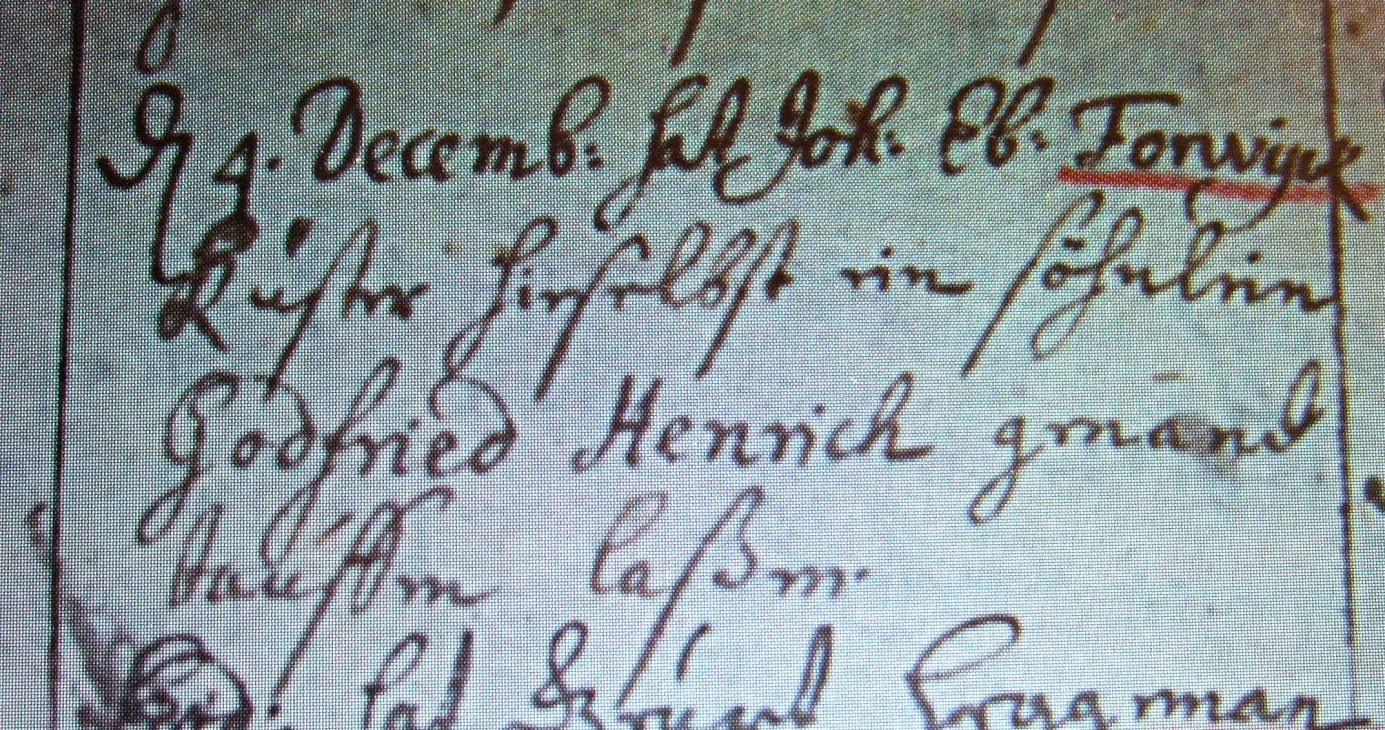 D 4. Decemb: hat Joh: Eb: Forwyck
Küster hirselbst ein söhnlein
Godfried Henrich gmānt
tauffen laßen.
hat Krugman